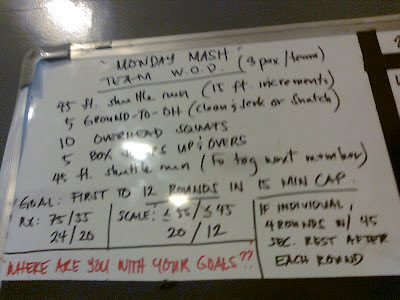 'MONDAY MASH'
TEAM W.O.D. (3 pax/team)
45 ft. shuttle run (15 ft. increments)
5 GROUND-TO-OH (clean & jerk or snatch)
10 OVERHEAD SQUATS
5 BOX UP & OVERS
45 ft. shuttle run (to tag next member)
GOAL: FIRST TO 12 ROUNDS IN 15 MIN CAP.
RX: 75/55
24/20
SCALE: ≤55/≤45
20/12
IF INDIVIDUAL,
4 ROUNDS W/ 45
SEC. REST AFTER
EACH ROUND
WHERE ARE YOU WITH YOUR GOALS??